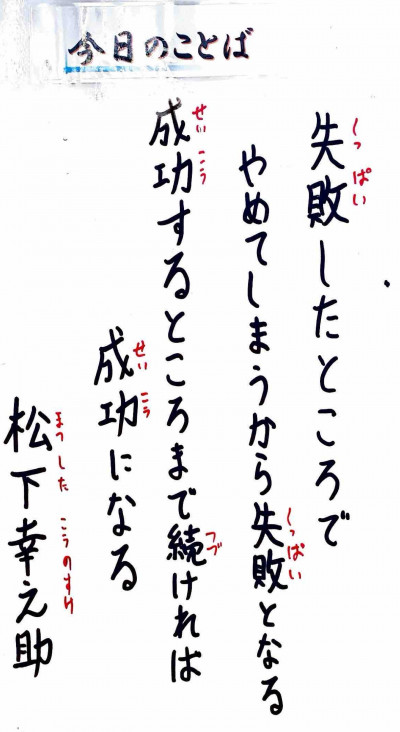 今日のことば
失敗したところで
しっぱい
やめてしまうから失敗となる
しっぱい
成功するところまで続ければ
せいこう
つづ
成功になる
せいこう
松下幸之助
まつしたこうのすけ